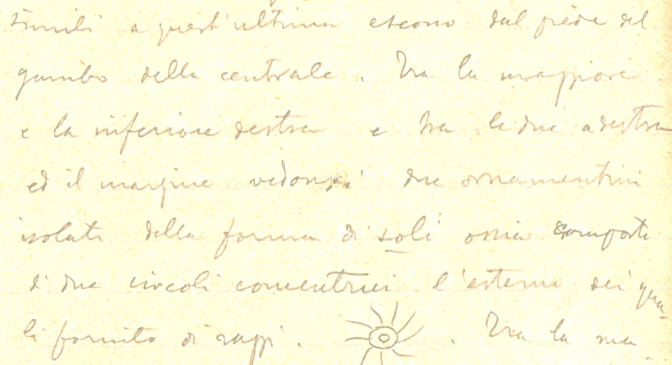 simili a quest'ultima escono dal piede del
gambo della centrale. Tra la maggiore
e la inferiore destra e tra le due a destra
ed il margine vedonsi due ornamentini
isolati della forma di soli ossia composti
di due circoli concentrici l'esterno dei qua-
li fornito di raggi. . Tra la ma-